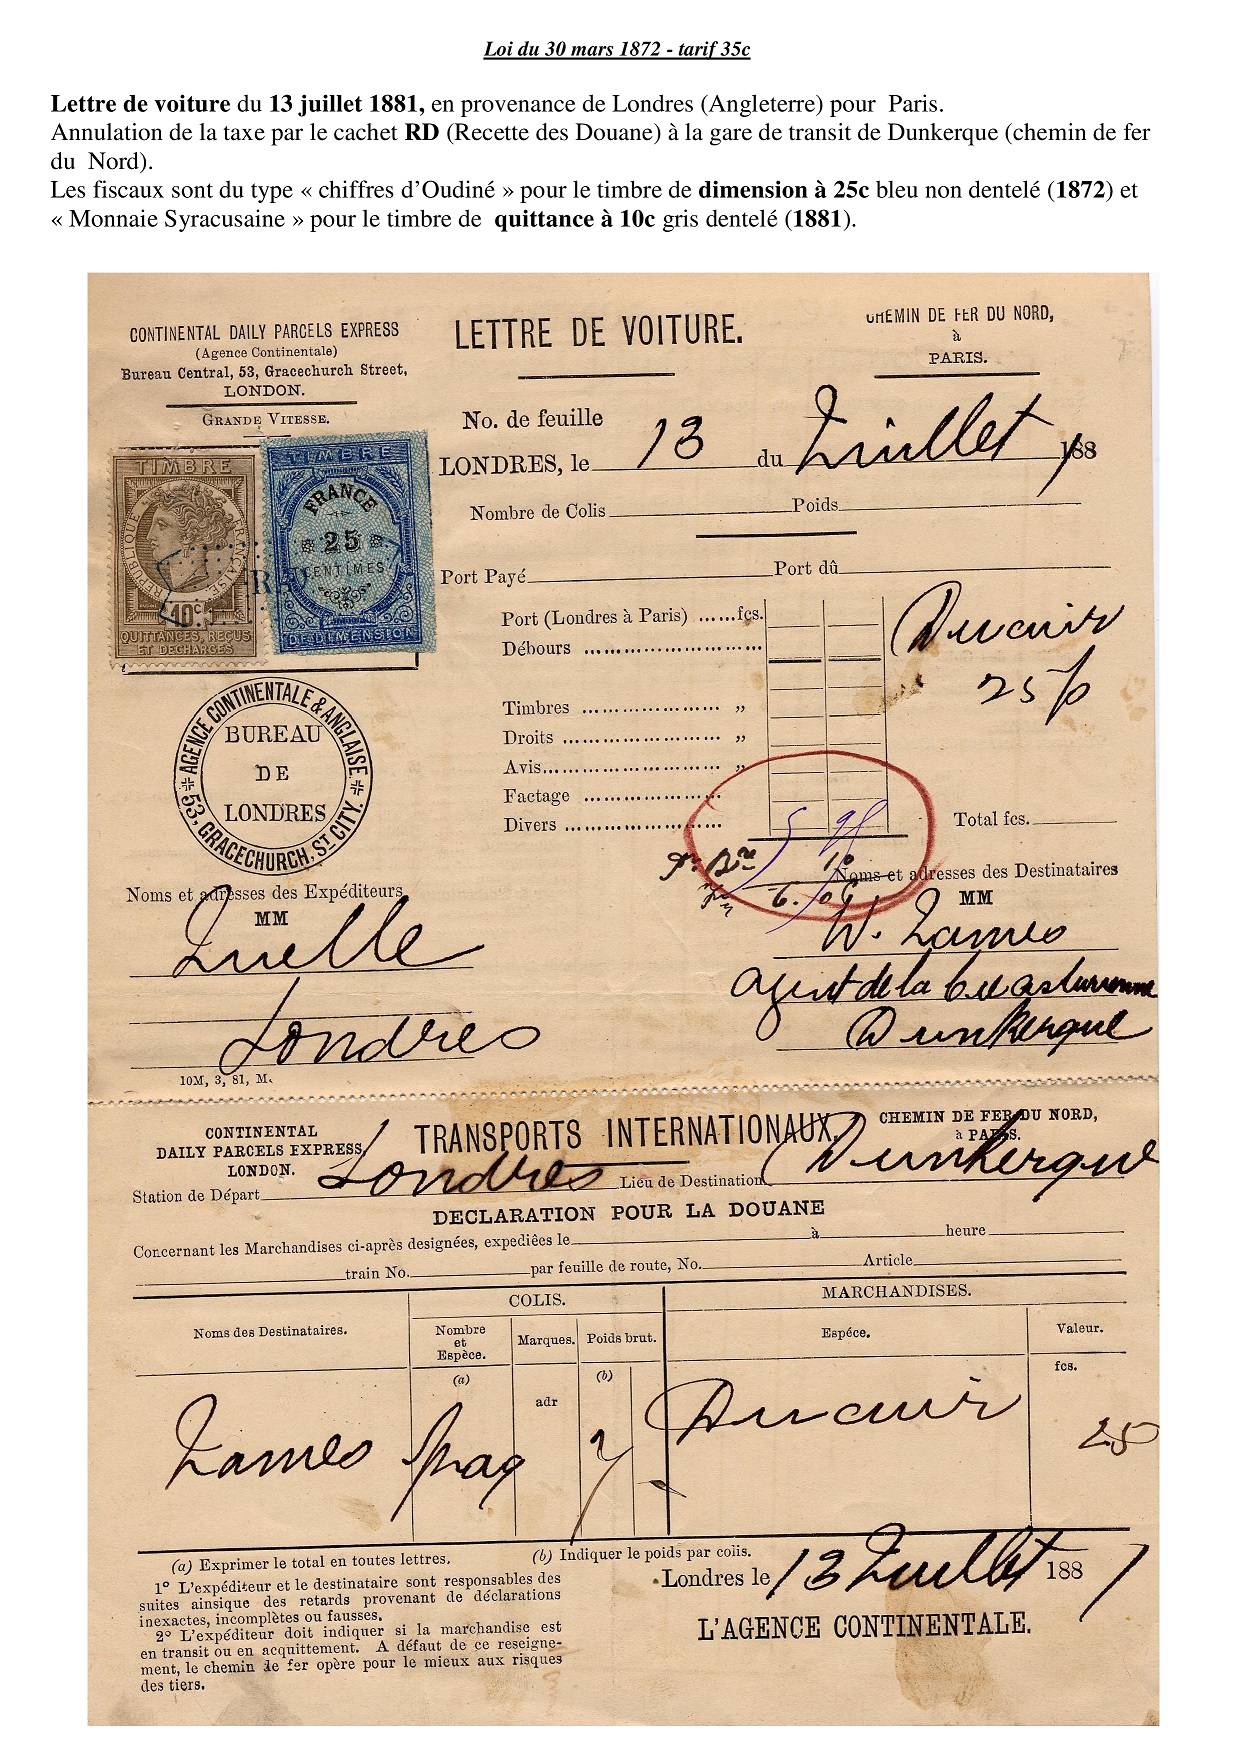 Loi du 30 mars 1872 - tarif 35c
Lettre de voiture du 13 juillet 1881, en provenance de Londres (Angleterre) pour Paris.
Annulation de la taxe par le cachet RD (Recette des Douane) à la gare de transit de Dunkerque (chemin de fer
du Nord).
Les fiscaux sont du type « chiffres d'Oudiné » pour le timbre de dimension à 25c bleu non dentelé (1872) et
« Monnaie Syracusaine » pour le timbre de quittance à 10c gris dentelé (1881).
CONTINENTAL DAILY PARCELS EXPRESS
(Agence Continentale)
Bureau Central, 53, Gracechurch Street,
LONDON.
GRANDE VITESSE.
LETTRE DE VOITURE.
CHEMIN DE FER DU NORD,
à
PARIS.
No. de feuille
LONDRES, le 13 du Juillet 1881
Nombre de Colis Poids
Port Payé Port dû
TIMBRE
RÉPUBLIQUE FRANÇAISE
10c.
QUITTANCES, REÇUS
ET DÉCHARGES
TIMBRE
FRANCE
25
CENTIMES
DE DIMENSION
RD
Port (Londres à Paris) ......fcs.
Débours
Timbres „
Droits „
Avis „
Factage
Divers
25 f
5 95
10
6.05
Total fcs.
AGENCE CONTINENTALE & ANGLAISE
53, GRACECHURCH. ST CITY.
BUREAU
DE
LONDRES
Noms et adresses des Expéditeurs
MM
Londres
10M, 3, 81, M.
Noms et adresses des Destinataires
MM
W. James
agent de la
Dunkerque
CONTINENTAL
DAILY PARCELS EXPRESS,
LONDON.
TRANSPORTS INTERNATIONAUX,
CHEMIN DE FER DU NORD,
à PARIS.
Station de Départ Londres Lieu de Destination Dunkerque
DECLARATION POUR LA DOUANE
Concernant les Marchandises ci-après designées, expediêes le à heure
train No. par feuille de route, No. Article
COLIS. MARCHANDISES.
Noms des Destinataires. Nombre et Espèce. Marques. Poids brut. Espéce. Valeur.
(a) (b) fcs.
adr
James 25
(a) Exprimer le total en toutes lettres. (b) Indiquer le poids par colis.
1° L'expéditeur et le destinataire sont responsables des
suites ainsique des retards provenant de déclarations
inexactes, incomplètes ou fausses.
2° L'expéditeur doit indiquer si la marchandise est
en transit ou en acquittement. A défaut de ce reseigne-
ment, le chemin de fer opère pour le mieux aux risques
des tiers.
Londres le 13 Juillet 1881
L'AGENCE CONTINENTALE.